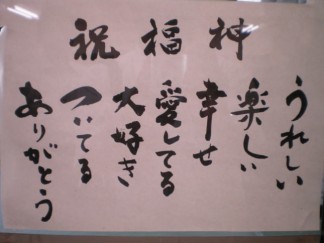 祝福神
うれしい
楽しい
幸せ
愛してる
大好き
ついてる
ありがとう